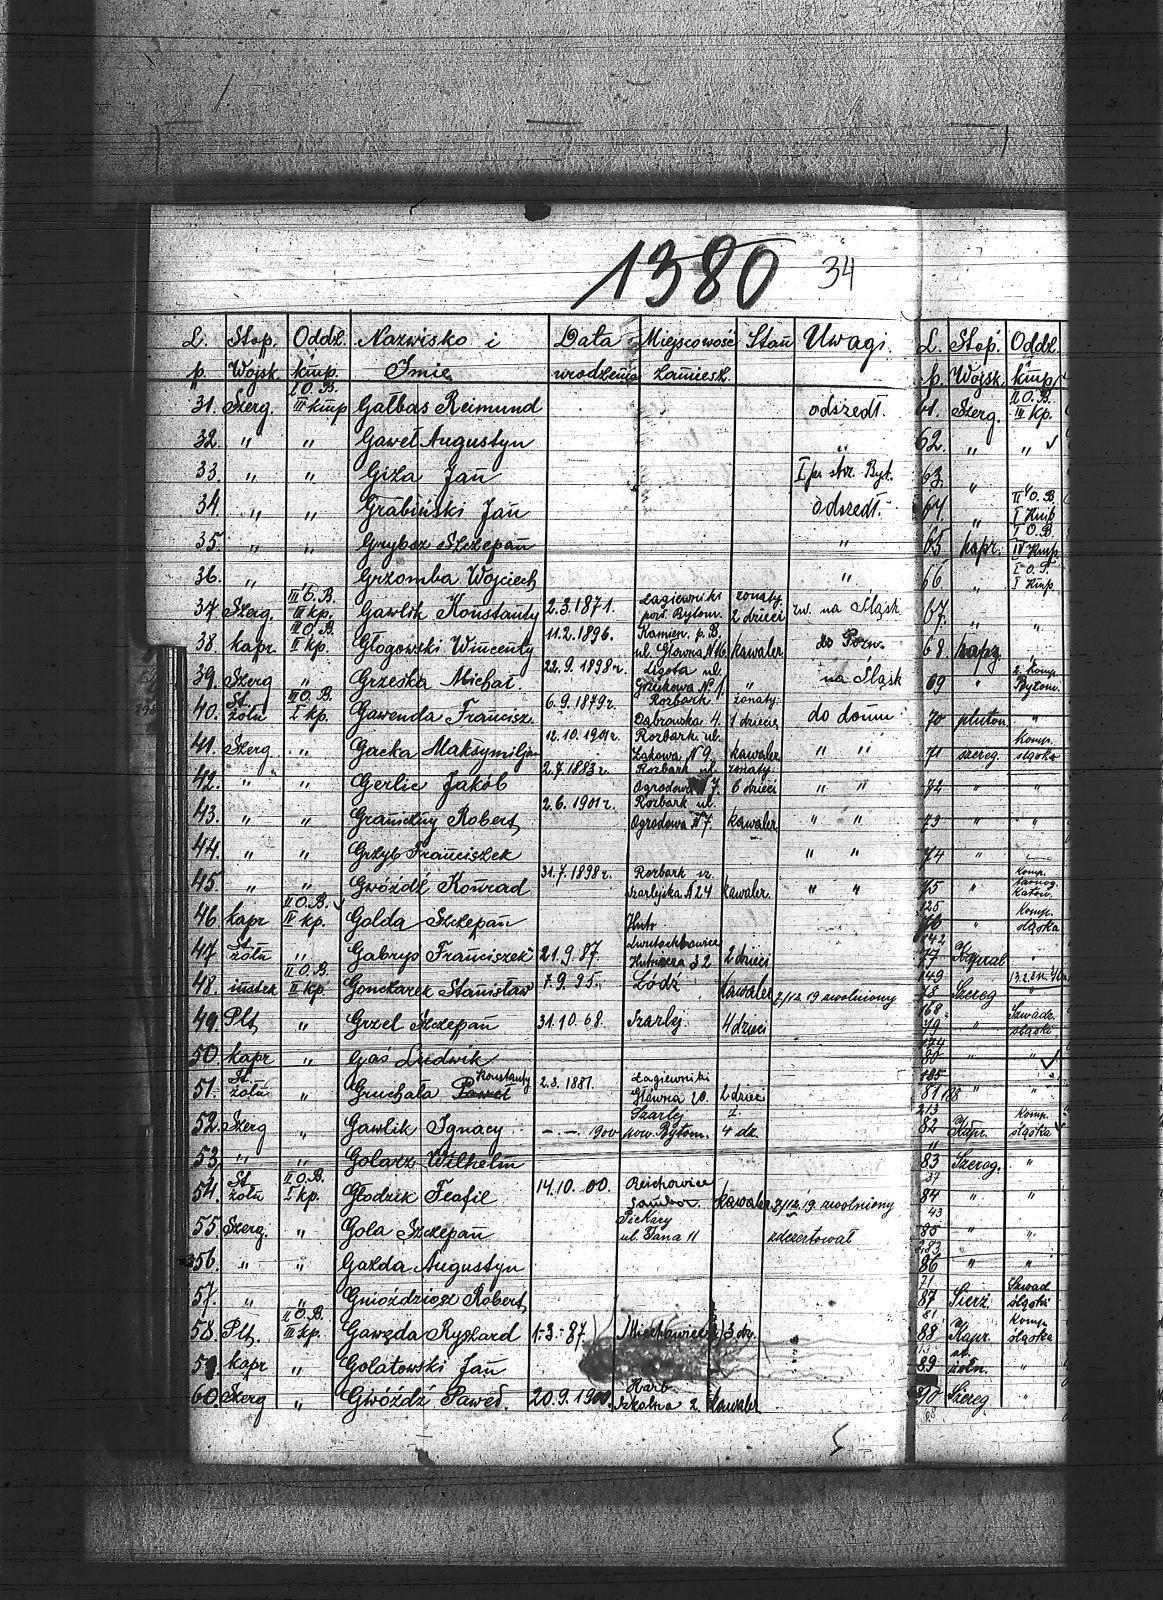 1380 34
L. p. Stop. Wojsk Oddz. i kmp. Nazwisko i Imię Data urodzenia Miejscowość zamieszk. Stan Uwagi.
31. Szerg. I O.B. III kmp Gałbas Reimund odszedł.
32. " " Gaweł Augustyn "
33. " " Giza Jan I p. strz. Byt.
34. " " Grabiński Jan odszedł.
35. " " Grybsz Szczepan "
36. " " Grzomba Wojciech "
37. Szerg. III O.B. III kp. Gawlik Konstanty 2.3.1871. Łagiewniki pow. Bytom. żonaty 2 dzieci zw. na Śląsk
38. kapr. III O.B. I kp. Głogowski Wincenty 11.2.1896. Kamien. p. B. ul. Głowna N 16 kawaler do Pozn.
39. Szerg " Grzeska Michał. 22.9.1898r. Ligota ul. N 1. " na Śląsk
40. St. żołn III O.B. I kp. Gawenda Francisz. 6.9.1879r. Rozbark Dąbrowska 4. żonaty. 1 dziecię do domu
41. Szerg. " Gacka Maksymiljan 12.10.1901r. Rozbark ul. Łąkowa N 9. kawaler " "
42. " " Gerlic Jakób 2.7.1883r. Rozbark ul. Ogrodowa 7. żonaty 6 dzieci " "
43. " " Graniczny Robert 2.6.1901r. Rozbark ul. Ogrodowa N 7. kawaler " "
44. " " Grzyb Franciszek " "
45. " " Gwóźdź Konrad 31.7.1898r. Rozbark Szarlejska N 24 kawaler " "
46. kapr II O.B. IV kp. Golda Szczepan
47. St. żołn " Gabryś Franciszek 21.9.87. Hutnicza 32 2 dzieci
48. II O.B. II kp. Gonckarek Stanisław 7.9.95. Łódź kawaler 2/12.19 zwolniony
49. Plt " Grzel Szczepan 31.10.68. Szarlej 4 dzieci
50. kapr " Gaś Ludwik
51. St. żołn " Gruchała Paweł Konstanty 2.3.1881. Łagiewniki Główna 20. 2 dzieci
52. Szerg " Gawlik Ignacy -.-. 1900 Szarlej pow. Bytom. ż. 4 dz.
53. " " Golarz Wilhelm
54. St. żołn II O.B. I kp. Głodzik Teafil 14.10.00. kawaler 2/12.19 zwolniony
55. Szerg. " Gola Szczepan Piekary ul. Jana 11 zdezertował
56. " " Gażda Augustyn
57. " " Gnioździosz Robert
58. Plt. II O.B. III kp. Gawzda Ryszard 1.3.87. Miechowice 3 dz.
59. kapr " Golatowski Jan
60. Szerg " Gwóźdź Paweł. 20.9.1900. Szkolna 2. kawaler
L. p. Stop. Wojsk. Oddz. i kmp
61. Szerg. II O.B. III kp.
62. " "
63. "
64 " II O.B. I kmp
65 kapr. I O.B. IV kmp
66 I kmp
67. " "
68. kapr. "
69 " 2 komp Bytom.
70 pluton. "
71 szereg. komp. śląska
72 " "
73 " "
74 "
75 " komp.
76 " komp. śląska
77 Kapral "
78 Szereg "
79 " Szwadr. śląski
80 " "
81 " "
82 Kapr. komp. śląska
83 Szereg. "
84 " "
85 "
86 " "
87 Sierż. Szwad śląski
88 Kapr. Komp. śląska
89 st. żołn. "
90 Szereg. "